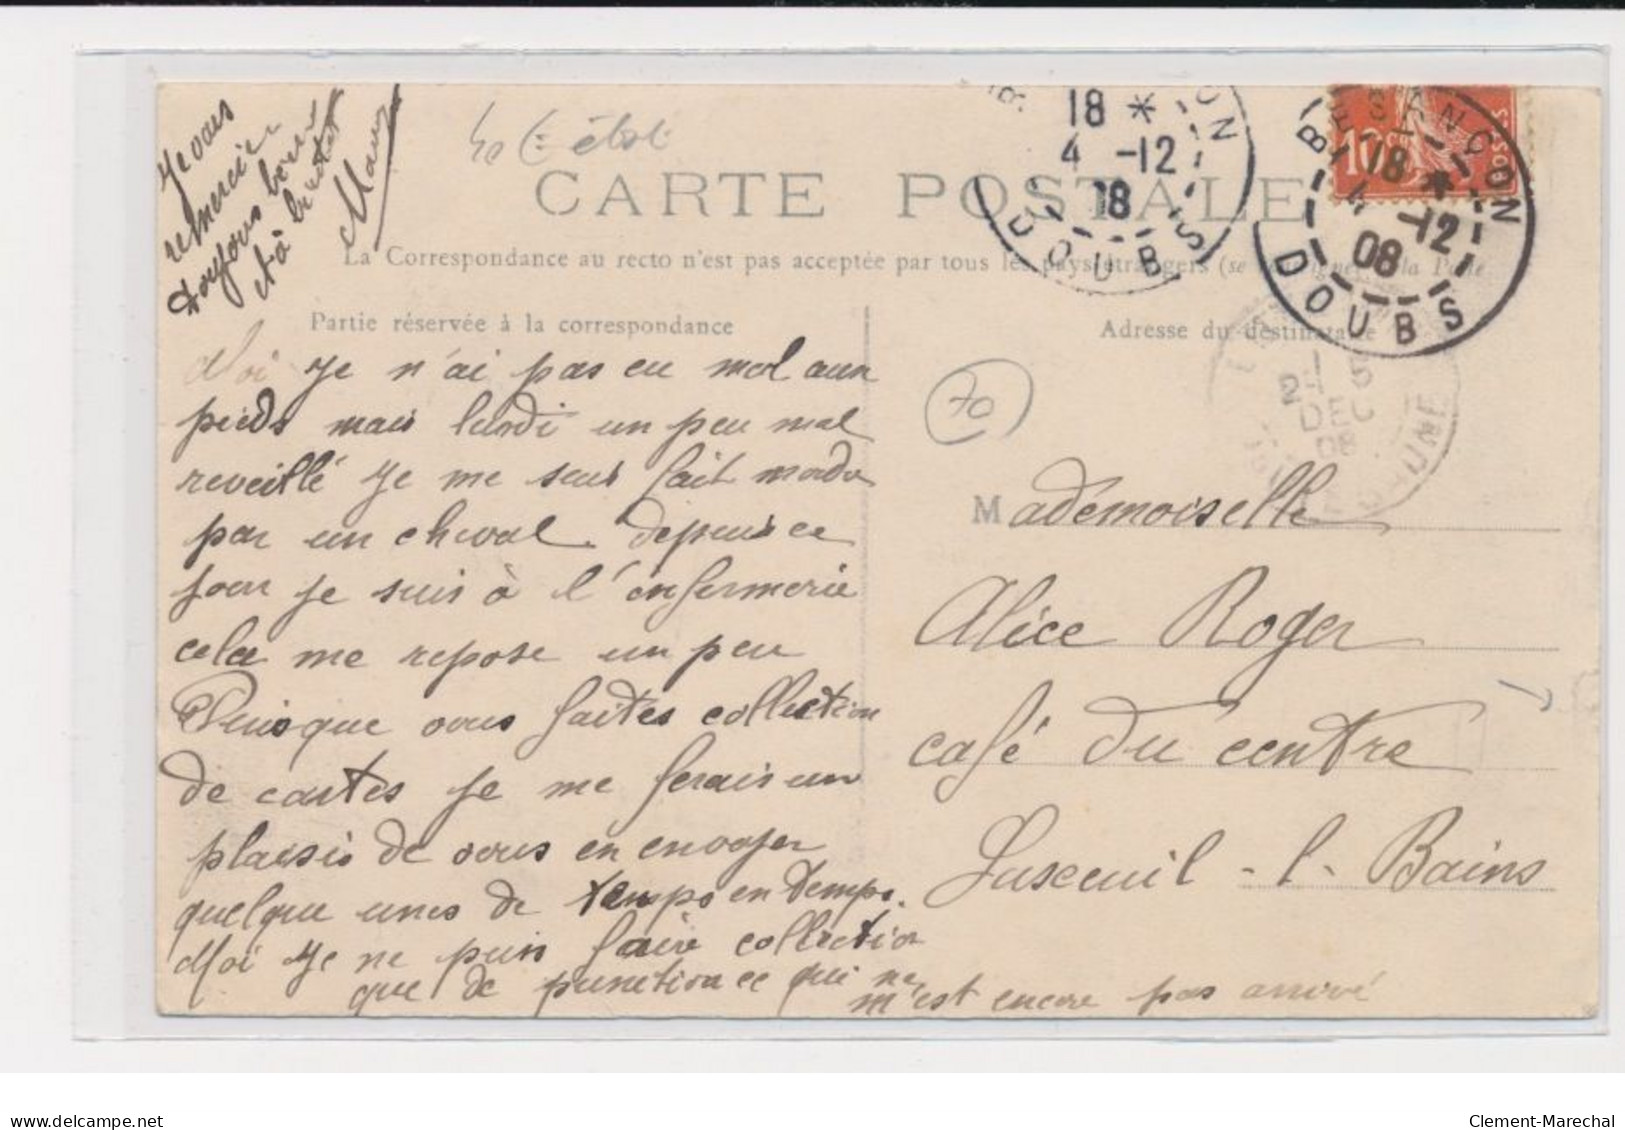 Je vais
remercier
Toujours bonne
et à bientôt
Mary
CARTE POSTALE
La Correspondance au recto n'est pas acceptée par tous les pays étrangers (se la Poste
Partie réservée à la correspondance
Moi je n'ai pas eu mal aux
pieds mais lundi un peu mal
reveillé je me suis fait mordu
par un cheval depuis ce
jour je suis à l'enfermerie
cela me repose un peu
Puisque vous faites collection
de cartes je me ferais un
plaisis de vous en envoyer
quelque unes de temps en temps.
Moi je ne puis faire collection
que de punition ce qui ne
m'est encore pas arrivé
Adresse du destinataire
70
Mademoiselle
Alice Roger
café du centre
Luxeuil-l-Bains
18 *
4 -12
18
DOUBS
BESANÇON
18 *
4 -12
08
DOUBS
10
5
DEC
08
delcampe.net
Clement-Marechal